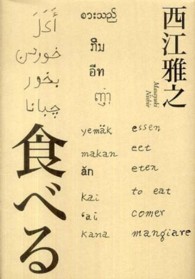 西江雅之
Masayuki Nishie
食べる
أَكَلَ
خوردن
بخور
چبانا
စားသည်
yemäk
makan
ăn
kai
'ai
kana
essen
eten
to eat
comer
mangiare